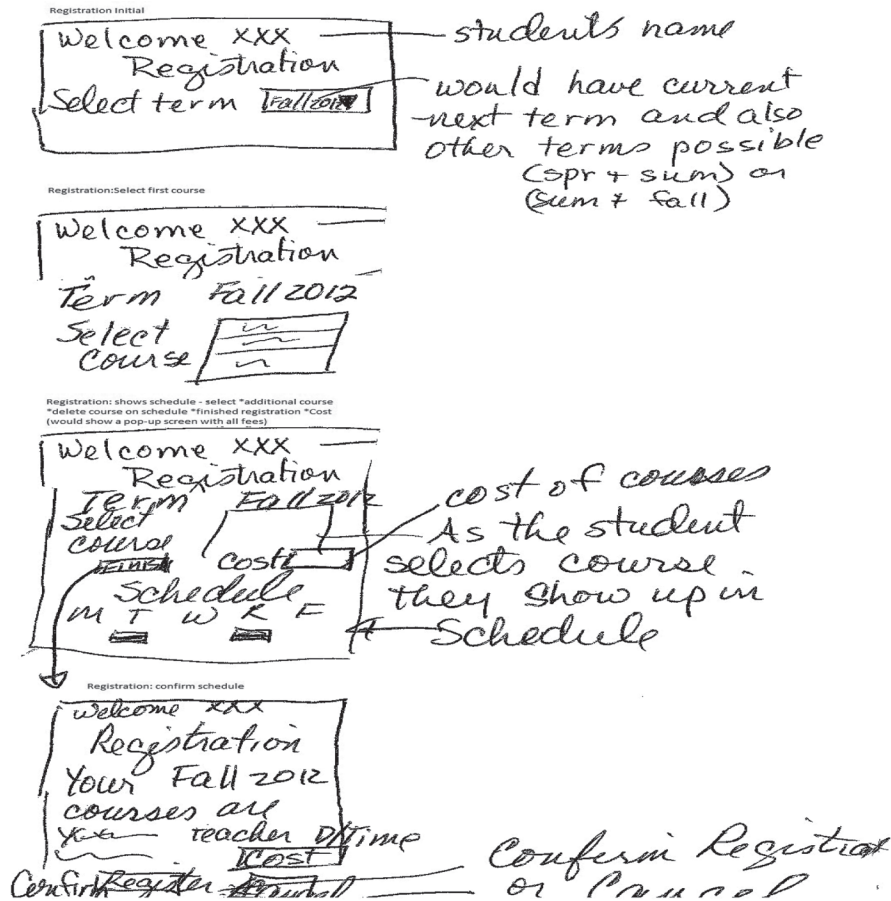 Registration Initial
Welcome XXX
students name
Registration
Select term Fall 2012
would have current
next term and also
other terms possible
(spr + sum) or
(sum + fall)
Registration:Select first course
Welcome XXX
Registration
Term Fall 2012
Select
Course
Registration: shows schedule - select *additional course
*delete course on schedule *finished registration *Cost
(would show a pop-up screen with all fees)
Welcome XXX
Registration
Term Fall 2012
Select
course
FINISH Cost
Schedule
M T W R F
cost of courses
As the student
selects course
they show up in
Schedule
Registration: confirm schedule
Welcome XXX
Registration
Your Fall 2012
courses are
Teacher D/Time
Cost
Confirm Register
Confirm Registrat
or Cancel